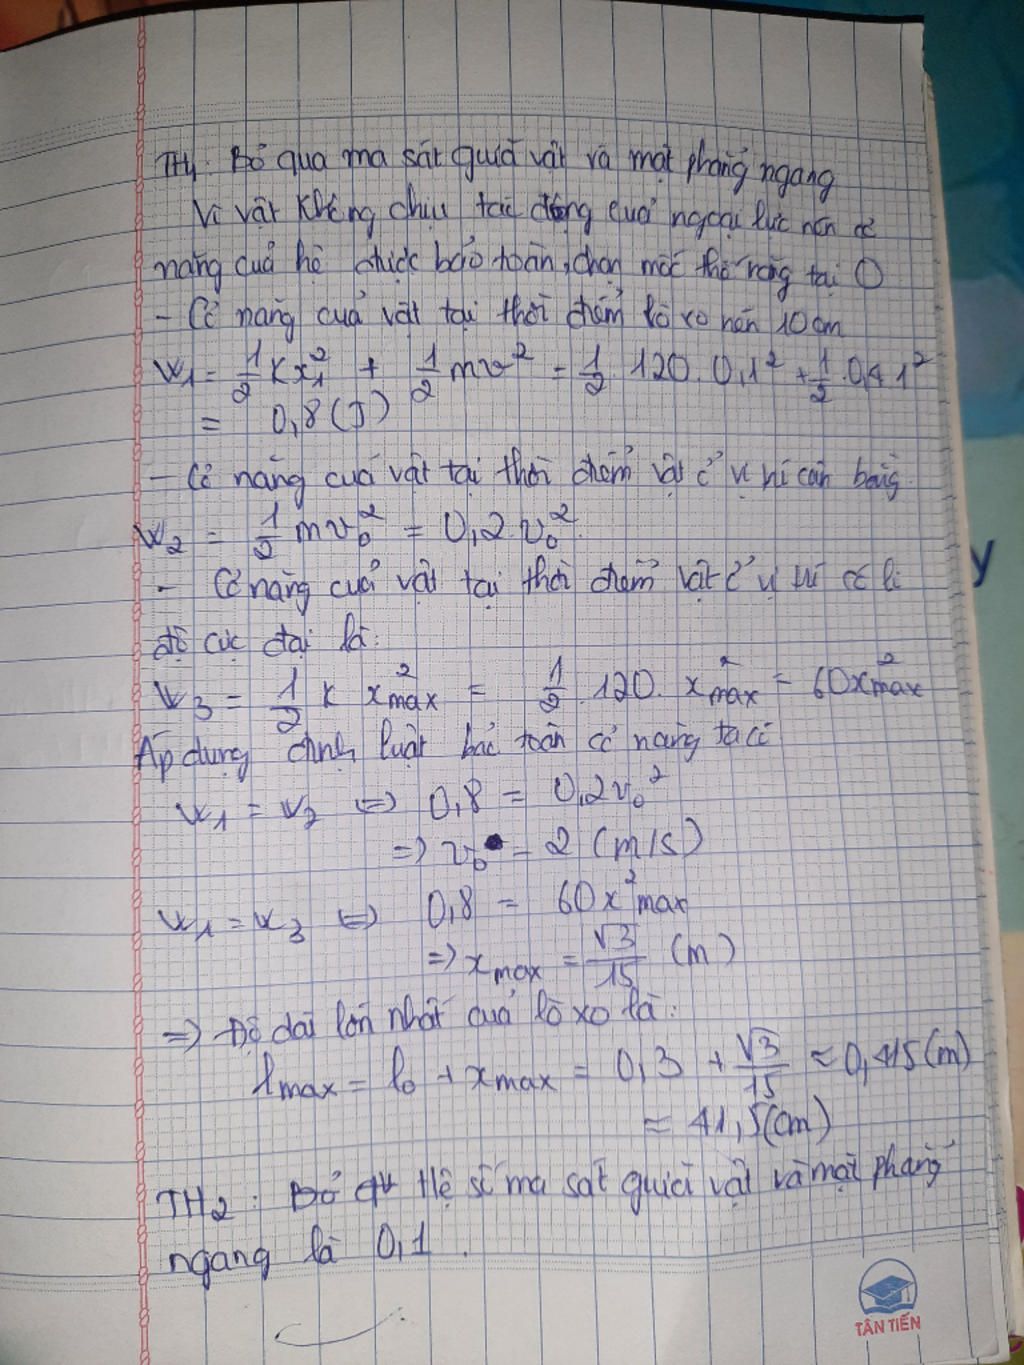 TH1: Bỏ qua ma sát giữa vật và mặt phẳng ngang
Vì vật không chịu tác động của ngoại lực nên cơ
năng của hệ được bảo toàn, chọn mốc thế năng tại O
- Cơ năng của vật tại thời điểm lò xo nén 10 cm
W1 = 1/2 K x1² + 1/2 mv² = 1/2 120. 0,1² + 1/2 . 0,4 1²
= 0,8 (J)
- Cơ năng của vật tại thời điểm vật ở vị trí cân bằng
W2 = 1/2 mv0² = 0,2.v0².
- Cơ năng của vật tại thời điểm vật ở vị trí có li
độ cực đại là:
W3 = 1/2 K x²max = 1/2 . 120. x²max = 60x²max
Áp dụng định luật bảo toàn cơ năng ta có
W1 = W2 <=> 0,8 = 0,2v0²
=> v0 = 2 (m/s)
W1 = W3 <=> 0,8 = 60x²max
=> xmax = √3/15 (m)
=> Độ dài lớn nhất của lò xo là:
lmax = l0 + xmax = 0,3 + √3/15 ≈ 0,415(m)
≈ 41,5(cm)
TH2: Hệ số ma sát giữa vật và mặt phẳng
ngang là 0,1.
TÂN TIẾN
y